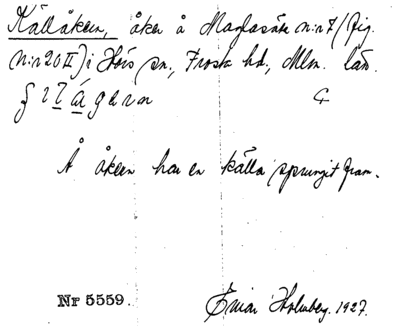 Källåkern, åker å Maglasäte n:r 7 (fig.
N:r 20 II) i Hörs sn., Frosta hd., Mlm. län.
Å åkern har en källa sprungit fram.
Nr 5559. Einar Holmberg. 1927.